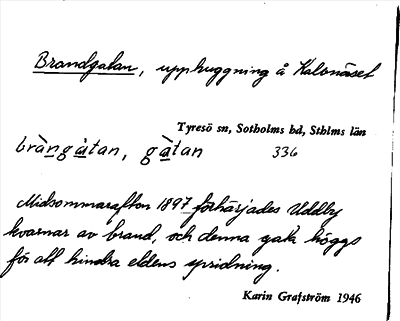 Brandgatan, upphuggning å Kalvnäset
Tyresö sn, Sotholms hd, Sthlms län
bràngátan, gàtan 336
Midsommarafton 1897 förhärjades Uddby
kvarnar av brand, och denna gata höggs
för att hindra eldens spridning.
Karin Grafström 1946